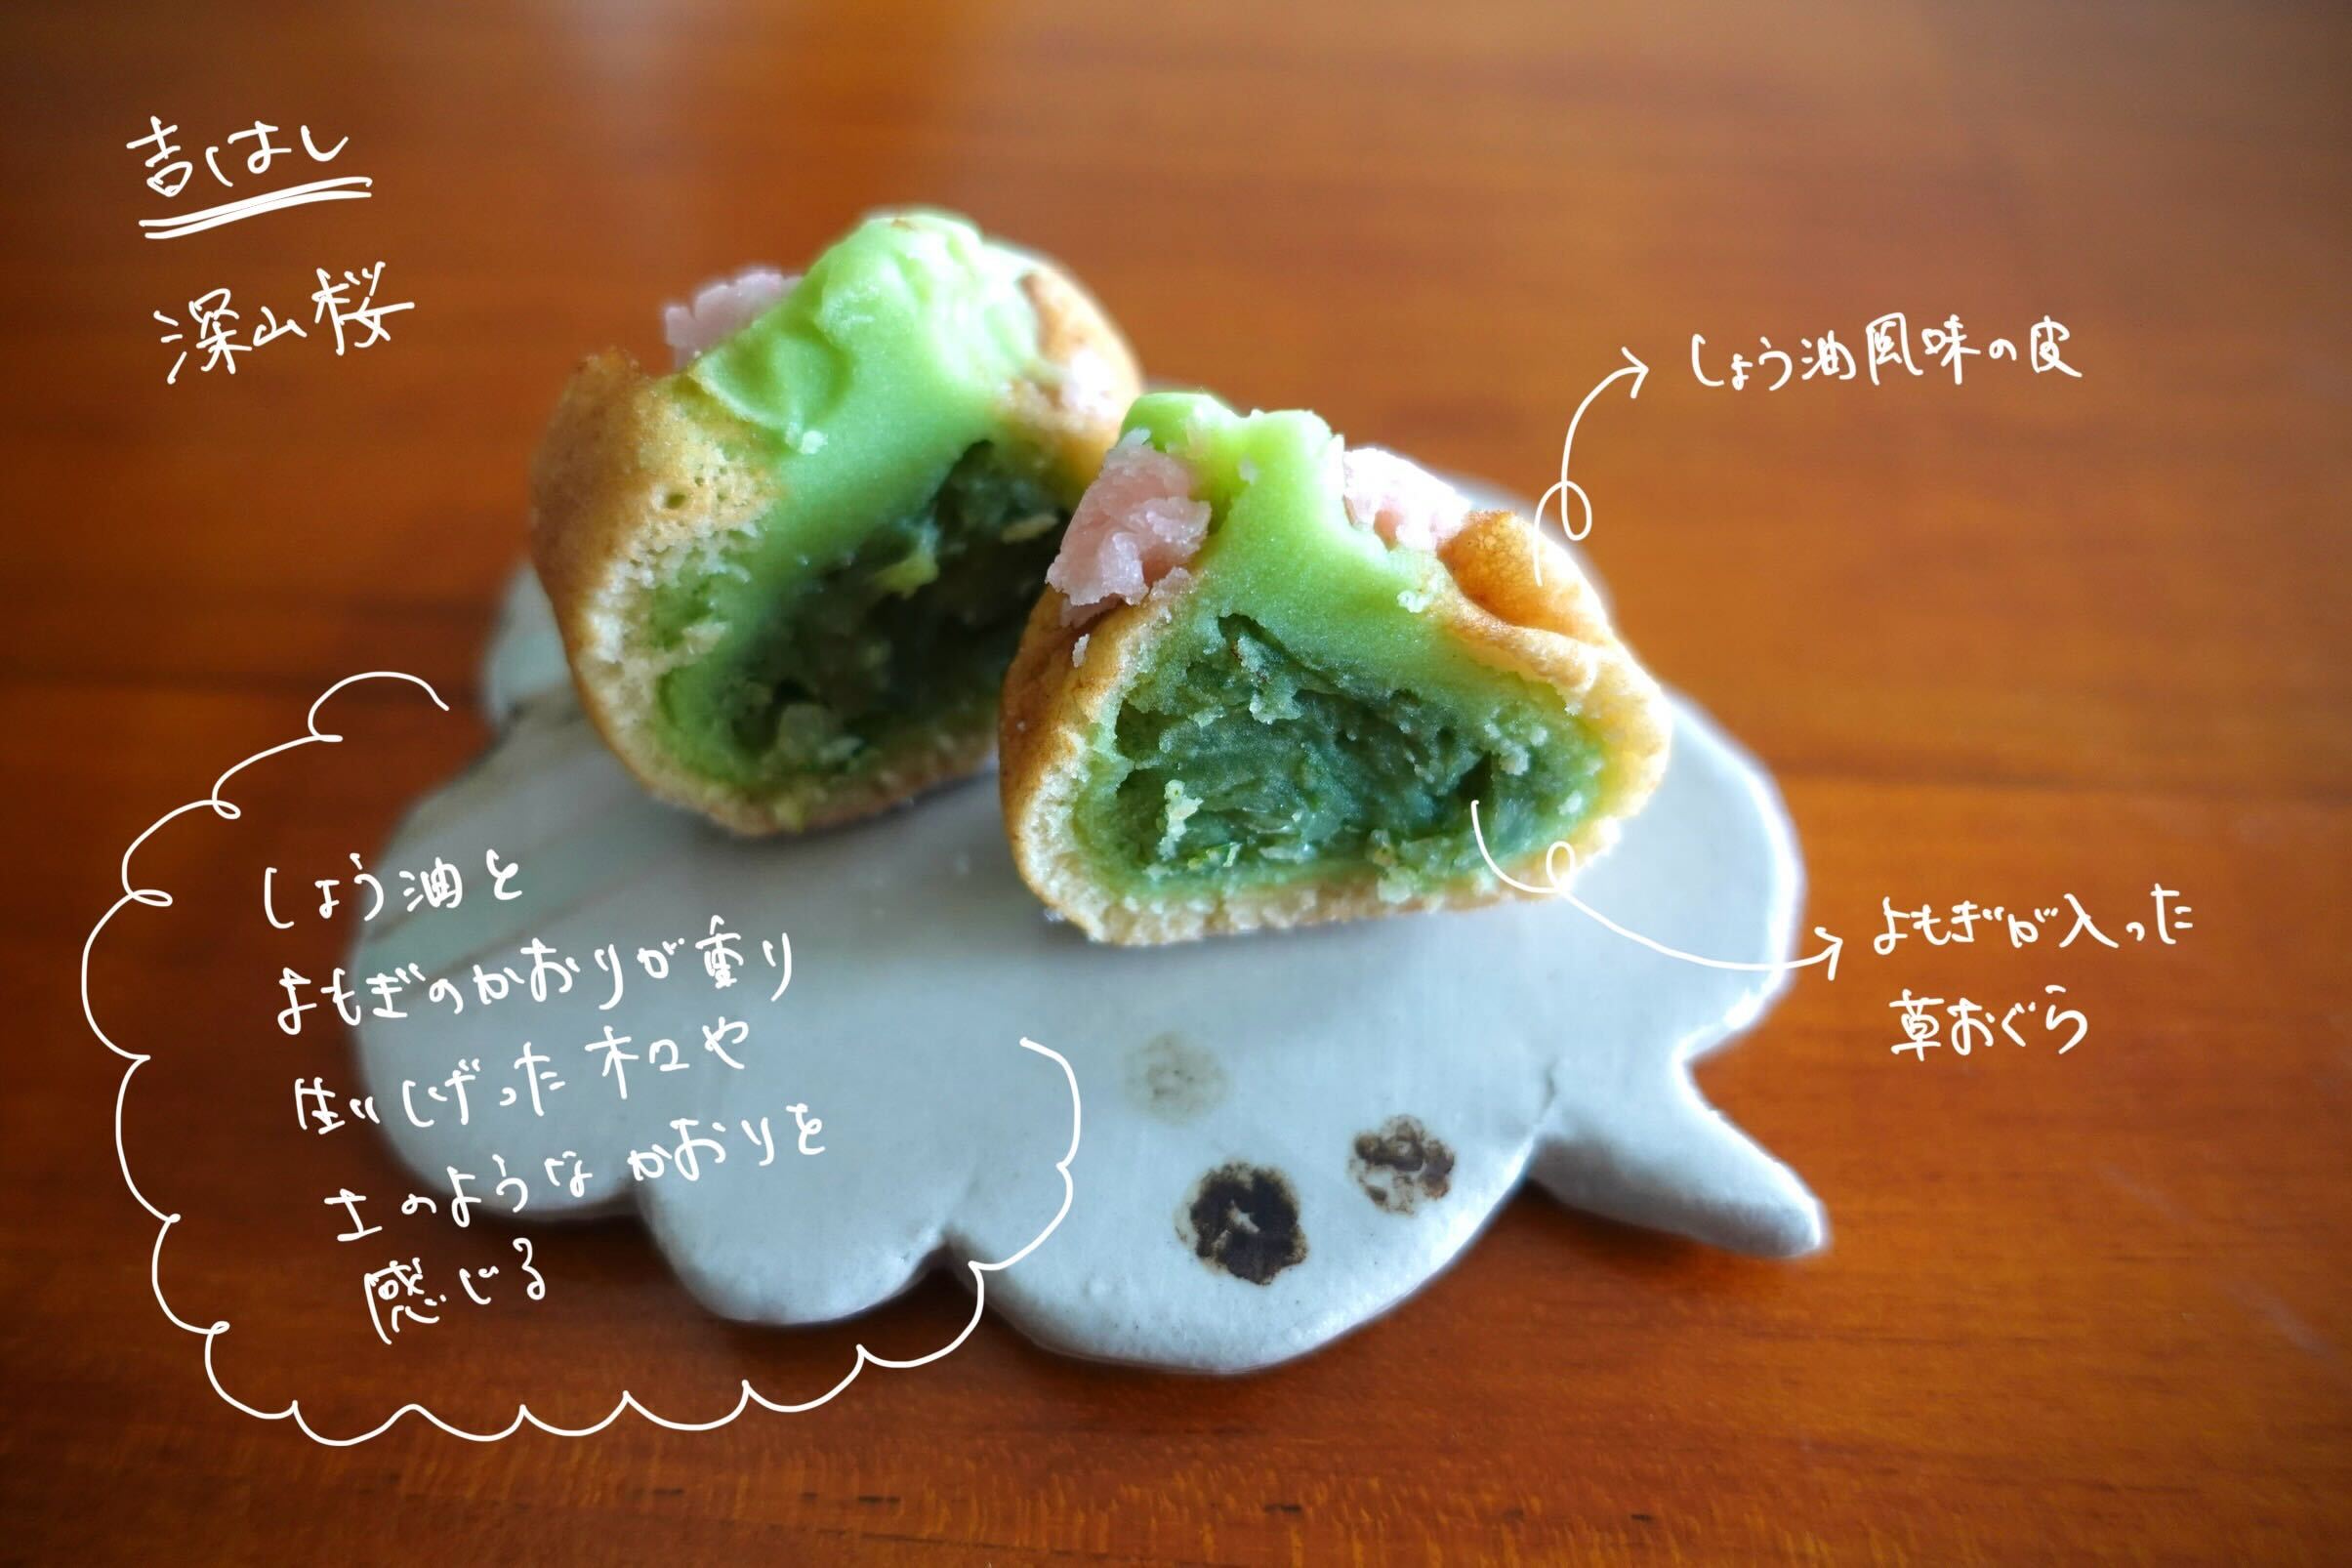 吉はし
深山桜
しょう油風味の皮
よもぎが入った
草おぐら
しょう油と
よもぎのかおりが重り
生いしげった木々や
土のようなかおりを
感じる